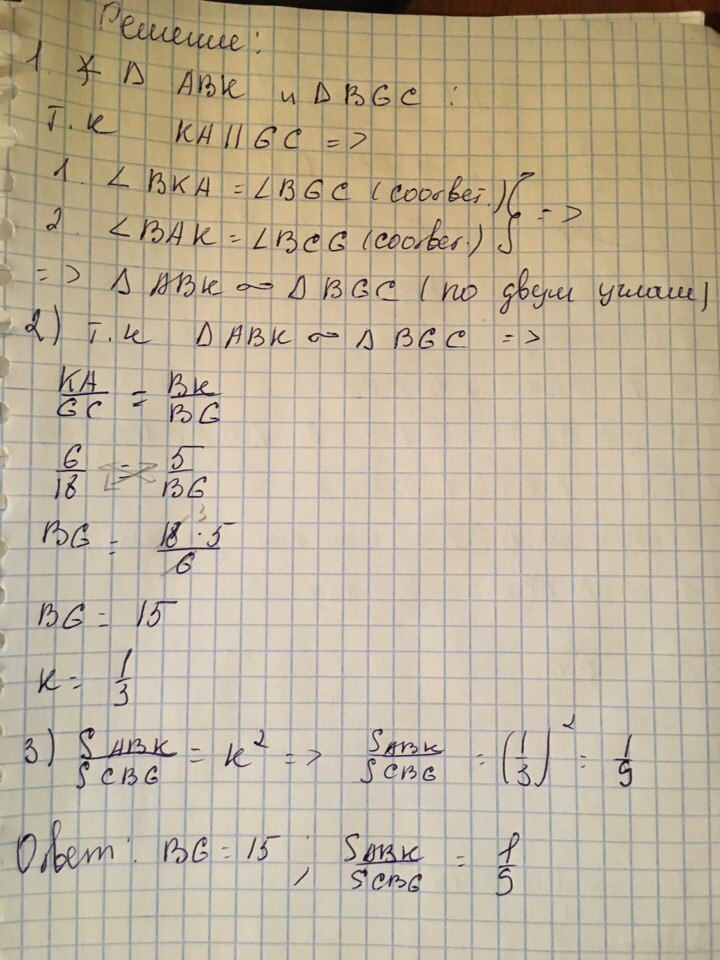 Решение:
1. ∡ Δ ABK и ΔBGC:
Т.к KA || GC =>
1. ∠BKA = ∠BGC (соответ.)
2. ∠BAK = ∠BCG (соответ.) } =>
=> Δ ABK ∾ ΔBGC (по двум углам)
2) т.к ΔABK ∾ Δ BGC =>
KA/GC = BK/BG
6/18 = 5/BG
BG = 18 3 · 5/6
BG = 15
K = 1/3
3) S ABK/S CBG = K² => S ABK/S CBG = (1/3)² = 1/9
Ответ: BG = 15 ; S ABK/S CBG = 1/9